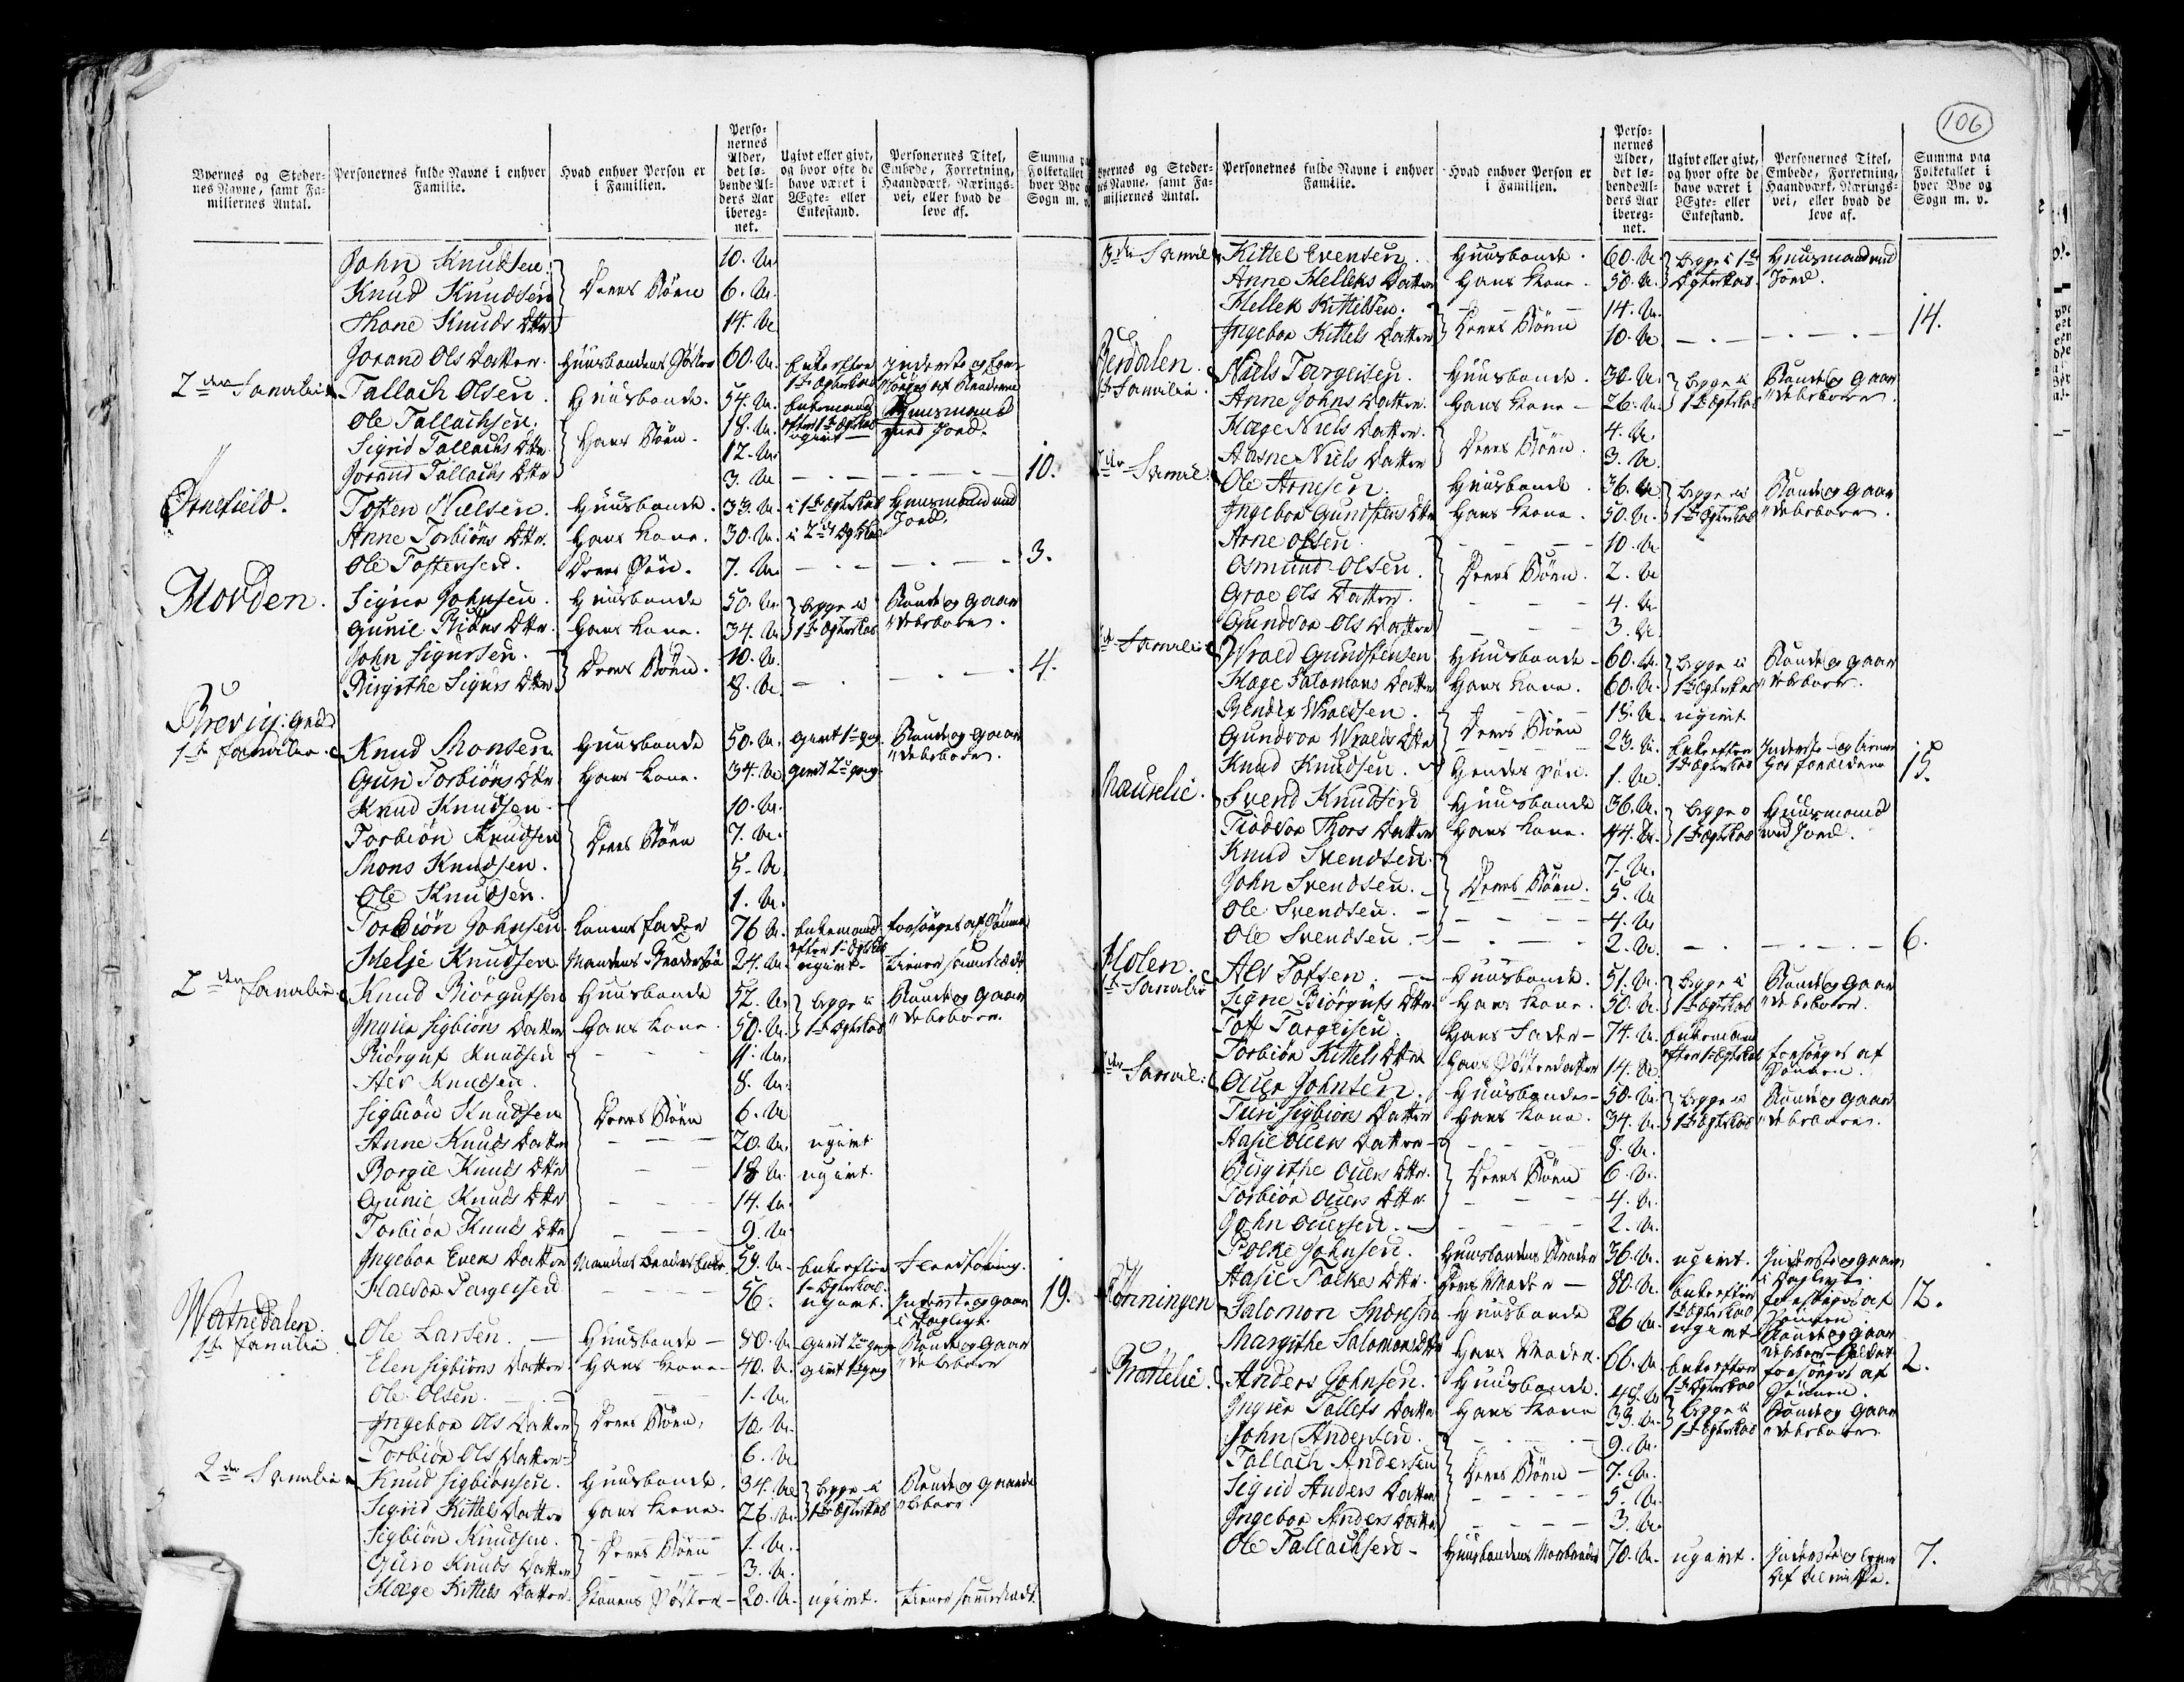 Byernes og Steder-
nes Navne, samt Fa-
miliernes Antal.
Personernes fulde Navne i enhver
Familie.
Hvad enhver Person er
i Familien.
Perso-
nernes
Alder,
det lø-
bende Al-
ders Aar
ibereg-
net.
Ugivt eller givt,
og hvor ofte de
have været i
Ægte- eller
Enkestand.
Personernes Titel,
Embede, Forretning,
Haandværk, Nærings-
vei, eller hvad de
leve af.
Summa
Folketallet
hver Bye
Sogn m. v.
John Knudsen. 10. Ar
Knud Knudsen Deres Børn 6. Ar.
Thone Knuds Dttr 14. Ar
Jorand Ols Datter. Huusbondens Søster 60. Ar. Enke efter 1ste Ægteskab
2den Familie Tallach Olsen. Huusbonde. 54. Ar. Enkemand efter 1ste Ægteskab Huusmand med Jord.
Ole Tallachsen. Hans Børn. 18. Ar. ugivt
Sigrid Tallachs Dttr 12. Ar.
Jorand Tallachs Dttr 3. Ar 10.
Ørnefield. Tosten Nielsen. Huusbonde. 33. Ar. i 1ste Ægteskab Huusmand med Jord.
Anne Torbiøns Dttr. Hans Kone. 30. Ar. i 2det Ægteskab
Ole Tostensen. Deres Søn. 7. Ar. 3.
Hovden. Sigur Johnsen. Huusbonde 50. Ar. Begge i 1ste Ægteskab Bonde og Gaardebeboer.
Gunil Biøns Dttr. Hans Kone. 34. Ar.
John Sigursen. Deres Børn. 10. Ar.
Birgithe Sigurs Dttr 8. Ar 4.
Brevig: Gaard
1ste Familie. Knud Monsen Huusbonde 50. Ar. Givt 1ste gang. Bonde og Gaardebeboer.
Gun Torbiøns Dttr Hans Kone. 34. Ar Givt 2den gang.
Knud Knudsen 10. Ar.
Torbiøn Knudsen Deres Børn 7. Ar.
Mons Knudsen. 5. Ar.
Ole Knudsen. 1. Ar.
Torbiøn Johnsen. Konens Fader 76 Ar. Enkemand efter 1ste Ægteskab
Helje Knudsen. Mandens Brodersøn 24. Ar. ugivt. tiener sammesteds
2den Familie. Knud Biørgufsen Huusbonde 52. Ar. Begge i 1ste Ægteskab Bonde og Gaardebeboer.
Ingier Sigbiøns Datter Hans Kone. 50. Ar.
Biørguf Knudsen 11. Ar.
Alv Knudsen. 8. Ar.
Sigbiøn Knudsen Deres Børn 6. Ar
Anne Knuds Datter 20. Ar. ugivt
Borgil Knuds Dttr 18 Ar. ugivt.
Gunil Knuds Dttr 14. Ar.
Torbiør Knuds Dttr 9. Ar
Ingebor Evens Datter 59. Ar. Enke efter 1ste Ægteskab.
Haldor Tergeisen 56. ugivt. 19.
Watnedalen.
1ste Familie. Ole Larsen. Huusbonde 80. Ar. Givt 2den gang Bonde og Gaardebeboer
Elen Sigbiøns Datter Hans Kone 40. Ar. Givt 1ste gang
Ole Olsen. 1. Ar.
Ingebor Ols Datter Deres Børn. 10. Ar.
Torbiør Ols Datter 6. Ar
2den Familie Knud Sigbiønsen. Huusbonde. 34. Ar Begge i 1ste Ægteskab
Sigrid Kittels Datter Hans Kone. 26. Ar.
Sigbiøn Knudsen. Deres Børn 1. Ar.
Guro Knuds Datter 3. Ar.
Hæge Kittels Datter. Konens Søster 20. Ar. ugivt. tiener sammesteds.
106
Byernes og Steder-
nes Navne, samt Fa-
miliernes Antal.
Personernes fulde Navne i enhver
Familie.
Hvad enhver Person er
i Familien.
Perso-
nernes
Alder,
det lø-
bende Al-
ders Aar
ibereg-
net.
Ugivt eller givt,
og hvor ofte de
have været i
Ægte- eller
Enkestand.
Personernes Titel,
Embede, Forretning,
Haandværk, Nærings-
vei, eller hvad de
leve af.
Summa paa
Folketallet i
hver Bye og
Sogn m. v.
3die Familie Kittel Evensen. Huusbonde. 60. Ar. Begge i 1ste Ægteskab Huusmand med Jord.
Anne Helleks Datter Hans Kone. 50. Ar.
Hellek Kittelsen. Deres Børn 14. Ar.
Ingebor Kittels Datter 10. Ar 14.
Berdalen.
1ste Familie. Niels Torgeisen. Huusbonde. 30. Ar. Begge i 1ste Ægteskab Bonde og Gaardebeboer.
Anne Johns Datter. Hans Kone 26. Ar.
Hæge Niels Datter. Deres Børn. 4. Ar.
Aasne Niels Datter 3. Ar.
2den Familie Ole Arnesen. Huusbonde. 36. Ar Begge i 1ste Ægteskab Bonde og Gaardebeboer.
Ingebor Gunstens Dttr Hans Kone. 50. Ar.
Arne Olsen. 10. Ar
Osmund Olsen. Deres Børn. 2. Ar
Groe Ols Datter. 4. Ar
Gundvor Ols Datter 3. Ar
Familie Wraal Gundstensen Huusbonde 60. Ar. Begge i 1ste Ægteskab Bonde og Gaardebeboer.
Hæge Salomons Datter Hans Kone. 60. Ar.
Bendix Wraalsen. Deres Børn 18. Ar. ugivt
Gundvor Wraals Dttr 23. Ar. Enke efter 1ste Ægteskab
Knud Knudsen. Hendes Søn. 1. Ar. 15.
Haurelie. Svend Knudsen Huusbonde 36. Ar. Begge i 1ste Ægteskab Huusmand med Jord.
Tiodvor Thors Datter Hans Kone. 44. Ar.
Knud Svendsen. 7. Ar.
John Svendsen. Deres Børn. 5. Ar
Ole Svendsen. 4. Ar
Ole Svendsen. 2. Ar. 6.
Holen.
1ste Familie Alv Tofsen. Huusbonde. 51. Ar. Begge i 1ste Ægteskab Bonde og Gaardebeboer.
Signe Biørgufs Dttr Hans Kone. 50. Ar.
Tof Targeisen. Hans Fader 74. Ar. Enkemand efter 1ste Ægteskab forsørges af Sønnen.
Torbiør Kittels Dttr Hans Søsterdatter 14. Ar
2den Familie: Ouer Johnsen. Huusbonde 50. Ar. Begge i 1ste Ægteskab Bonde og Gaardebeboer.
Turi Sigbiøns Datter Hans Kone. 34. Ar.
Aasil Ouers Datter 8. Ar.
Birgithe Ouers Dttr. Deres Børn 6. Ar.
Torbiør Ouers Dttr. 4. Ar.
John Ouersen. 2. Ar.
Folke Johnsen. Huusbondens Broder 36. Ar. ugivt.
Aasil Folkes Dttr. Deres Moder 80. Ar. Enke efter 1ste Ægteskab forsørges af Sønnen 12.
Salomon Huusbonde 26 Ar. ugivt
Margithe Salomons Dttr Hans Moder. 66. Ar Enke efter 1ste Ægteskab forsørges af Sønnen. 2.
Brattelie. Anders Johnsen. Huusbonde. 48. Ar Begge i 1ste Ægteskab Bonde og Gaardebeboer.
Ingier Tallefs Datter Hans Kone 33. Ar.
John Andersen. 9. Ar.
Tallach Andersen Deres Børn 7. Ar.
Sigrid Anders Datter 5. Ar.
Ingebor Anders Datter 3. Ar.
Ole Tallachsen 70. Ar. ugivt. 7.